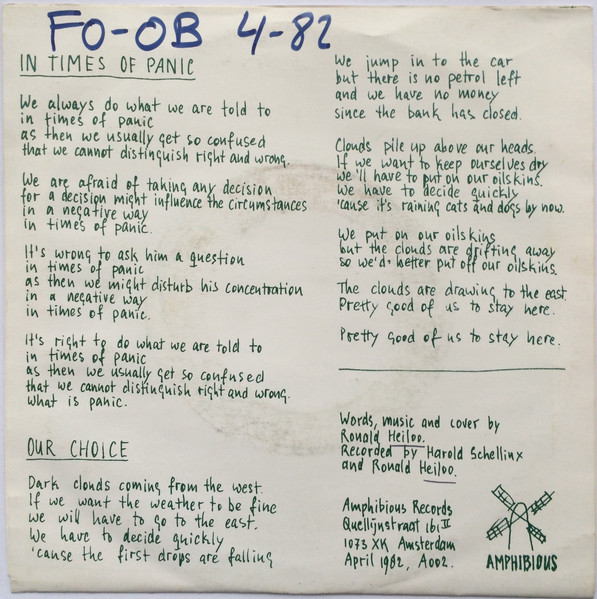 FO-OB 4-82
IN TIMES OF PANIC
We always do what we are told to
in times of panic
as then we usually get so confused
that we cannot distinguish right and wrong.
We are afraid of taking any decision
for a decision might influence the circumstances
in a negative way
in times of panic.
It's wrong to ask him a question
in times of panic
as then we might disturb his concentration
in a negative way
in times of panic.
It's right to do what we are told to
in times of panic
as then we usually get so confused
that we cannot distinguish right and wrong.
What is panic.
OUR CHOICE
Dark clouds coming from the west.
If we want the weather to be fine
we will have to go to the east.
We have to decide quickly
'cause the first drops are falling
We jump in to the car
but there is no petrol left
and we have no money
since the bank has closed.
Clouds pile up above our heads.
If we want to keep ourselves dry
we'll have to put on our oilskins.
We have to decide quickly
'cause it's raining cats and dogs by now.
We put on our oilskins
but the clouds are drifting away
so we'd better put off our oilskins.
The clouds are drawing to the east.
Pretty good of us to stay here.
Pretty good of us to stay here.
Words, music and cover by
Ronald Heiloo.
Recorded by Harold Schellinx
and Ronald Heiloo.
Amphibious Records
Quellijnstraat 161 II
1073 XK Amsterdam
April 1982, A002.
AMPHIBIOUS